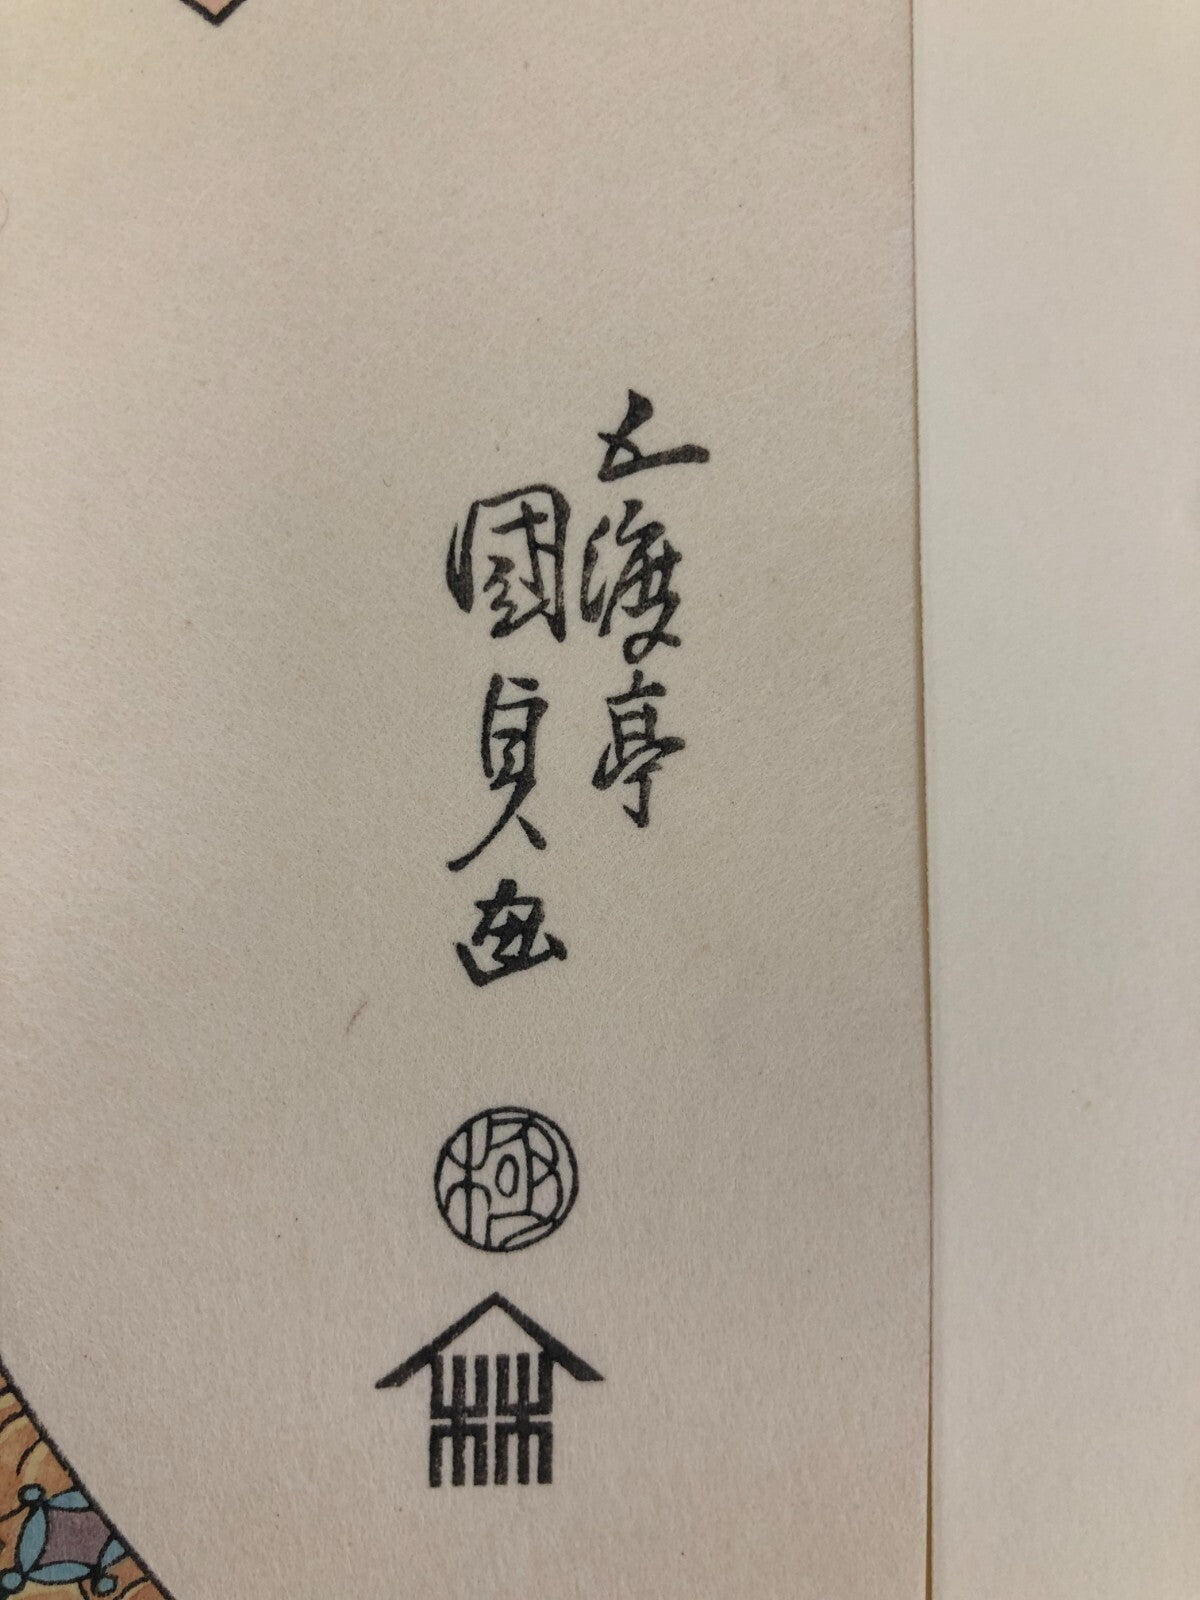 五渡亭
國貞画
極
林